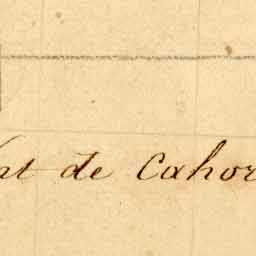 nt de Cahor